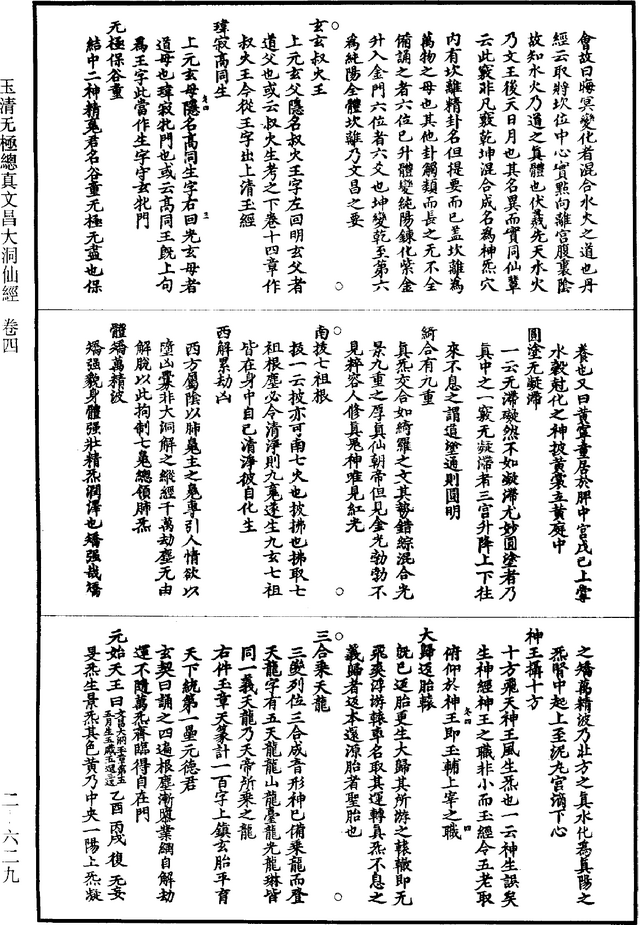 會故曰晦冥變化者混合水火之道也丹
經云取將坎位中心實點向離宮腹裏陰
故知水火乃道之真體也伏羲先天水火
乃文王後天日月也其名異而實同仙輩
云此竅非凡竅乾坤混合成名為神炁穴
內有坎離精卦名但提要而已蓋坎離為
萬物之母也其他卦觸類而長之无不全
備誦之者六位已升體變純陽鍊化紫金
升入金門六位者六爻也坤變乾至第六
為純陽全體坎離乃文昌之要
玄玄叔火王
上元玄父隱名叔火王字左回明玄父者
道父也或云叔火生考之下卷十四章作
叔火王今從王字出上清玉經
瑋寂高同生
上元玄母隱名高同生字右回光玄母者
道母也瑋寂牝門也或云高同王既上句
為王字此當作生字守玄牝門
无極保谷童
結中二神精鬼君名谷童无極无盡也保
養也又曰黄寧童居於脾中宮戊己上掌
水穀尅化之神披黄裳立黄庭中
圓塗无凝滯
一云无滯礙然不如凝滯尤妙圓塗者乃
真中之一竅无凝滯者三宮升降上下往
來不息之謂道塗通則圓明
綺合有九重
真炁交合如綺羅之文其勢錯綜混合光
景九重之厚真仙朝帝但見金光勃勃不
見粹容人修真見神唯見紅光
南拔七祖根
拔一云披亦可南七火也披拂也拂取七
祖根塵必令清淨則九鬼遂生九玄七祖
皆在身中自己清淨彼自化生
西解累劫凶
西方屬陰以肺鬼主之鬼專引人情欲以
墮凶釁非大洞解之縱經千萬劫塵无由
解脫以此拘制七鬼總領肺炁
體矯萬精波
矯强貌身體强壯精炁潤澤也矯强哉矯
之矯萬精波乃壯方之真水化為真陽之
炁腎中起上至泥九宮滴下心
神王攝十方
十方飛天神王風生炁也一云神生誤矣
生神經神王之職非小而玉經今五老取
俯仰於神王即玉輔上宰之職
大歸返胎轅
既已返胎更生大歸其所游之轅轍即无
飛爽浮游轅車名取其運轉真炁不息之
義歸者返本還源胎者聖胎也
三合乘天龍
三變列位三合成音形神已備乘龍而登
天龍字有五天龍龍山龍臺龍光龍琳皆
同一義天龍乃天帝所乘之龍
右件玉章天篆計一百字上鎮玄胎平育
天下統第一壘元德君
玄契曰誦之四遍根塵漸麼業綱自解劫
運不隨萬炁齋臨得自在門
元始天王曰文昌大洞玉章第五五月生五臟五還三返乙酉丙戌復无妄
旻炁生景炁其色黄乃中央一陽上炁凝
玉清无極總真文昌大洞仙經 卷四
二―六二九